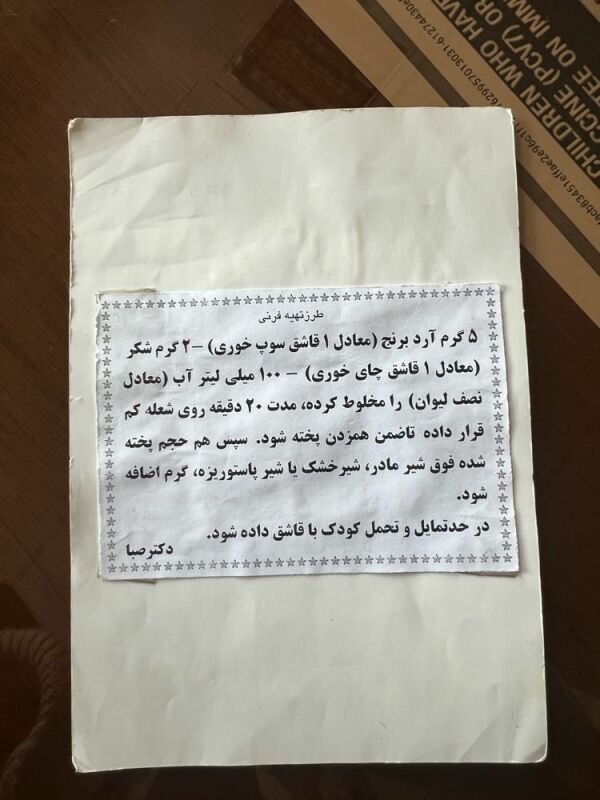 CHILDREN WHO HAVE
CCINE (PCV7) OR
TEE ON IMM
طرز تهیه فرنی
۵ گرم آرد برنج (معادل ۱ قاشق سوپ خوری) –۲ گرم شکر
(معادل ۱ قاشق چای خوری) – ۱۰۰ میلی لیتر آب (معادل
نصف لیوان) را مخلوط کرده، مدت ۲۰ دقیقه روی شعله کم
قرار داده تاضمن همزدن پخته شود. سپس هم حجم پخته
شده فوق شیر مادر، شیرخشک یا شیر پاستوریزه، گرم اضافه
شود.
در حدتمایل و تحمل کودک با قاشق داده شود.
دکترصبا